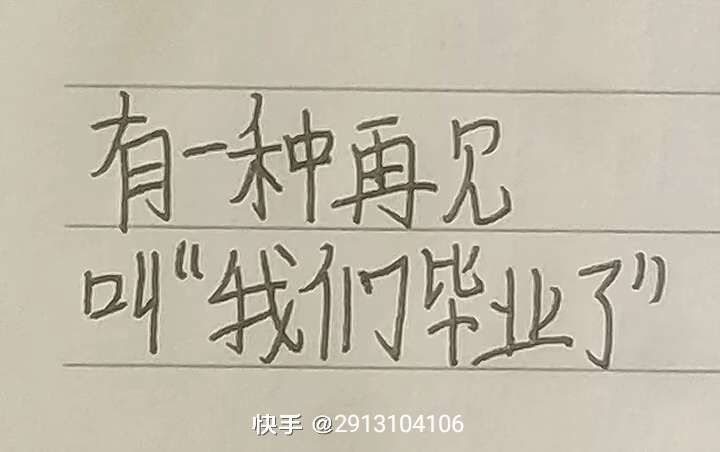 有一种再见
叫“我们毕业了”
快手 @2913104106